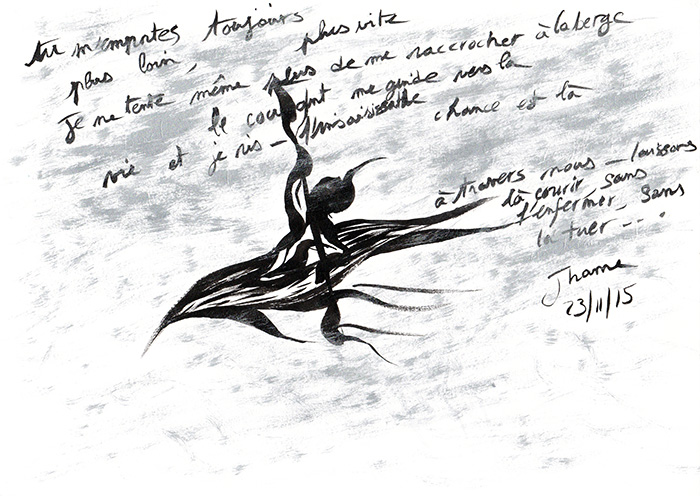 tu m'emportes toujours
plus loin, plus vite
je ne tente même plus de me raccrocher à la berge
le courant me guide vers la
vie et je ris - l'insaisissable chance est là
à travers nous - laissons
là courir, sans
l'enfermer, sans
la tuer - - .
Jhame
23/11/15